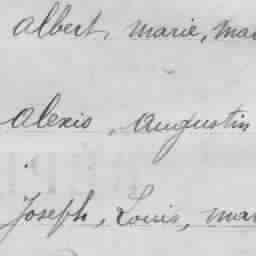 Albert, Marie, Mar
Alexis, Augustin
Joseph, Louis, mar